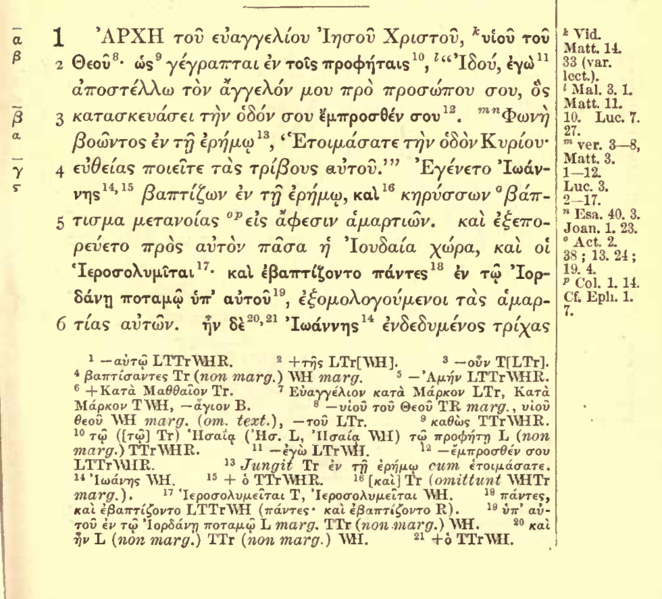 α
β
β
α
γ
ς
1 ἈΡΧΗ τοῦ εὐαγγελίου Ἰησοῦ Χριστοῦ, ᵏυἱοῦ τοῦ
2 Θεοῦ⁸· ὡς⁹ γέγραπται ἐν τοῖς προφήταις¹⁰, ˡ“Ἰδού, ἐγὼ¹¹
ἀποστέλλω τὸν ἄγγελόν μου πρὸ προσώπου σου, ὃς
3 κατασκευάσει τὴν ὁδόν σου ἔμπροσθέν σου¹². ᵐⁿΦωνὴ
βοῶντος ἐν τῇ ἐρήμῳ¹³, ‘Ἑτοιμάσατε τὴν ὁδὸν Κυρίου·
4 εὐθείας ποιεῖτε τὰς τρίβους αὐτοῦ.’” Ἐγένετο Ἰωάν-
νης¹⁴,¹⁵ βαπτίζων ἐν τῇ ἐρήμῳ, καὶ¹⁶ κηρύσσων ᵒβάπ-
5 τισμα μετανοίας ᵒᵖεἰς ἄφεσιν ἁμαρτιῶν. καὶ ἐξεπο-
ρεύετο πρὸς αὐτὸν πᾶσα ἡ Ἰουδαία χώρα, καὶ οἱ
Ἱεροσολυμῖται¹⁷· καὶ ἐβαπτίζοντο πάντες¹⁸ ἐν τῷ Ἰορ-
δάνῃ ποταμῷ ὑπ’ αὐτοῦ¹⁹, ἐξομολογούμενοι τὰς ἁμαρ-
6 τίας αὐτῶν. ἦν δὲ²⁰,²¹ Ἰωάννης¹⁴ ἐνδεδυμένος τρίχας
ᵏ Vid.
Matt. 14.
33 (var.
lect.).
ˡ Mal. 3. 1.
Matt. 11.
10. Luc. 7.
27.
ᵐ ver. 3–8,
Matt. 3.
1–12.
Luc. 3.
2–17.
ⁿ Esa. 40. 3.
Joan. 1. 23.
ᵒ Act. 2.
38; 13. 24;
19. 4.
ᵖ Col. 1. 14.
Cf. Eph. 1.
7.
¹ —αὐτῷ LTTrWHR. ² +τῆς LTr[WH]. ³ —οὖν T[LTr].
⁴ βαπτίσαντες Tr (non marg.) WH marg. ⁵ —Ἀμήν LTTrWHR.
⁶ +Κατὰ Μαθθαῖον Tr. ⁷ Εὐαγγέλιον κατὰ Μάρκον LTr, Κατὰ
Μάρκον TWH, —ἅγιον B. ⁸ —υἱοῦ τοῦ Θεοῦ TR marg., υἱοῦ
θεοῦ WH marg. (om. text.), —τοῦ LTr. ⁹ καθὼς TTrWHR.
¹⁰ τῷ ([τῷ] Tr) Ἡσαΐᾳ (Ἠσ. L, Ἠσαίᾳ WH) τῷ προφήτῃ L (non
marg.) TTrWHR. ¹¹ —ἐγὼ LTrWH. ¹² —ἔμπροσθέν σου
LTTrWHR. ¹³ Jungit Tr ἐν τῇ ἐρήμῳ cum ἑτοιμάσατε.
¹⁴ Ἰωάνης WH. ¹⁵ + ὁ TTrWHR. ¹⁶ [καὶ] Tr (omittunt WHTr
marg.). ¹⁷ Ἱεροσολυμεῖται T, Ἰεροσολυμεῖται WH. ¹⁸ πάντες,
καὶ ἐβαπτίζοντο LTTrWH (πάντες· καὶ ἐβαπτίζοντο R). ¹⁹ ὑπ’ αὐ-
τοῦ ἐν τῷ Ἰορδάνῃ ποταμῷ L marg. TTr (non marg.) WH. ²⁰ καὶ
ἦν L (non marg.) TTr (non marg.) WH. ²¹ +ὁ TTrWH.